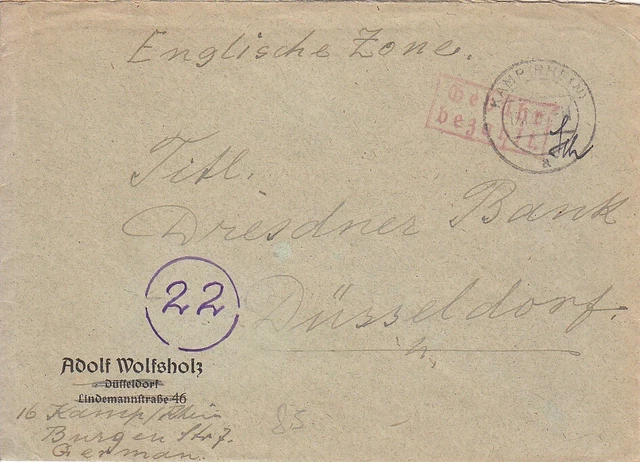 Englische Zone.
KAMP (RHEIN)
a
Gebühr
bezahlt.
Titl.
Dresdner Bank
Düsseldorf.
22
Adolf Wolfsholz
Düsseldorf
Lindemannstraße 46
16 Kamp/Rhein
Burgen Str 7.
German.
85